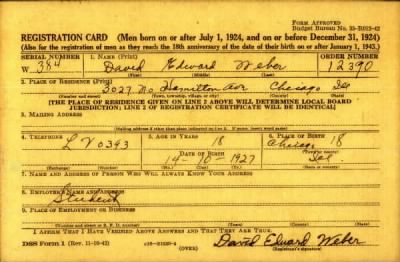 FORM APPROVED
Budget Bureau No. 33-R012-42
REGISTRATION CARD (Men born on or after July 1, 1924, and on or before December 31, 1924)
(Also for the registration of men as they reach the 18th anniversary of the date of their birth on or after January 1, 1943.)
SERIAL NUMBER 1. NAME (Print) ORDER NUMBER
W 384 David Edward Weber 12390
(First) (Middle) (Last)
2. PLACE OF RESIDENCE (Print)
3027 No Hamilton Ave Chicago Ill
(Number and street) (Town, township, village, or city) (County) (State)
[THE PLACE OF RESIDENCE GIVEN ON LINE 2 ABOVE WILL DETERMINE LOCAL BOARD
JURISDICTION; LINE 2 OF REGISTRATION CERTIFICATE WILL BE IDENTICAL]
3. MAILING ADDRESS
[Mailing address if other than place indicated on line 2. If same, insert word same]
4. TELEPHONE 5. AGE IN YEARS 6. PLACE OF BIRTH
18
DATE OF BIRTH
Chicago
(Town or county)
1927 Ill
(Exchange) (Number) (Mo.) (Day) (Yr.) (State or country)
7. NAME AND ADDRESS OF PERSON WHO WILL ALWAYS KNOW YOUR ADDRESS
8. EMPLOYER'S NAME AND ADDRESS
Student
9. PLACE OF EMPLOYMENT OR BUSINESS
(Number and street or R. F. D. number) (Town) (County) (State)
I AFFIRM THAT I HAVE VERIFIED ABOVE ANSWERS AND THAT THEY ARE TRUE.
DSS Form 1 (Rev. 11-16-42) (OVER) David Edward Weber